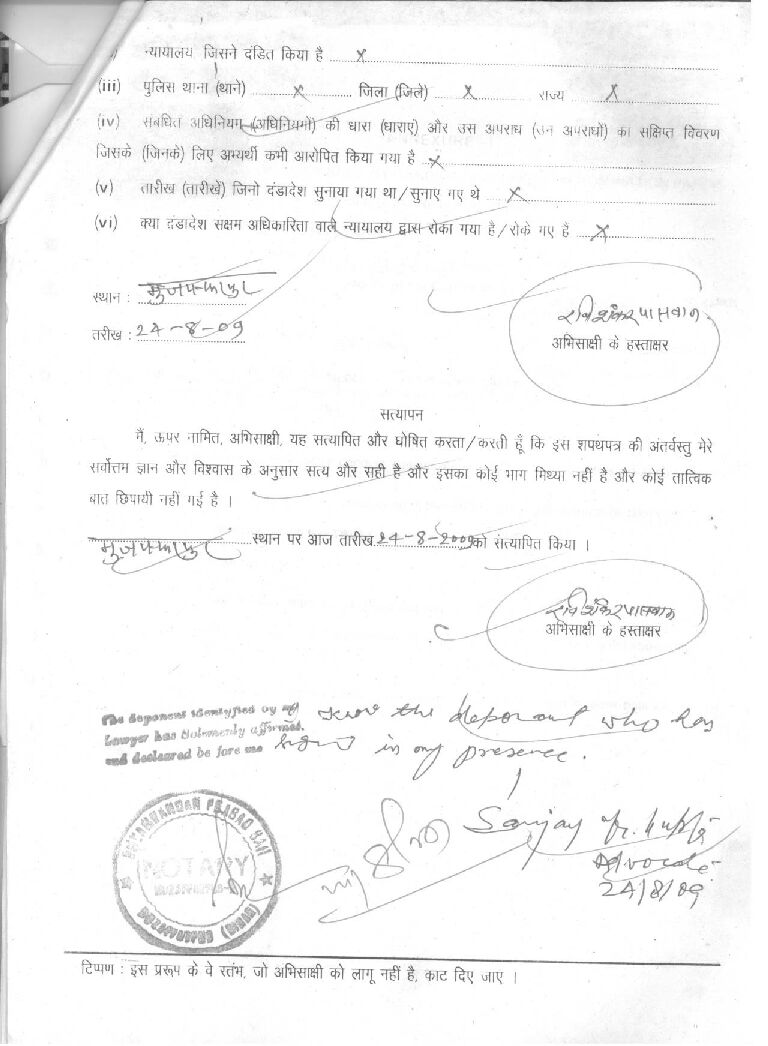 न्यायालय जिसने दंडित किया है x
(iii) पुलिस थाना (थाने) x जिला (जिले) x राज्य x
(iv) संबधित अधिनियम (अधिनियमों) की धारा (धाराए) और उस अपराध (उन अपराधों) का संक्षिप्त विवरण
जिसके (जिनके) लिए अभ्यर्थी कभी आरोपित किया गया है x
(v) तारीख (तारीखें) जिनो दंडादेश सुनाया गया था/सुनाए गए थे x
(vi) क्या दंडादेश सक्षम अधिकारिता वाले न्यायालय द्वारा रोका गया है/रोके गए हैं x
स्थान : मुजफ्फरपुर
रवि शंकर पासवान
तरीख : 24-8-09
अभिसाक्षी के हस्ताक्षर
सत्यापन
मैं, ऊपर नामित, अभिसाक्षी, यह सत्यापित और घोषित करता/करती हूँ कि इस शपथपत्र की अंतर्वस्तु मेरे
सर्वोत्तम ज्ञान और विश्वास के अनुसार सत्य और सही है और इसका कोई भाग मिथ्या नहीं है और कोई तात्विक
बात छिपायी नहीं गई है ।
मुजफ्फरपुर स्थान पर आज तारीख 24-8-2009 को सत्यापित किया ।
रवि शंकर पासवान
अभिसाक्षी के हस्ताक्षर
The deponent identyfied by my know the deponant who has
Lawyer has Solomenly affirmed.
and decleared be fore me in my presence.
Sanjay Kr. Gupta
Advocate
24/8/09
NOTARY
टिप्पण : इस प्ररूप के वे स्तंभ, जो अभिसाक्षी को लागू नहीं है, काट दिए जाए ।